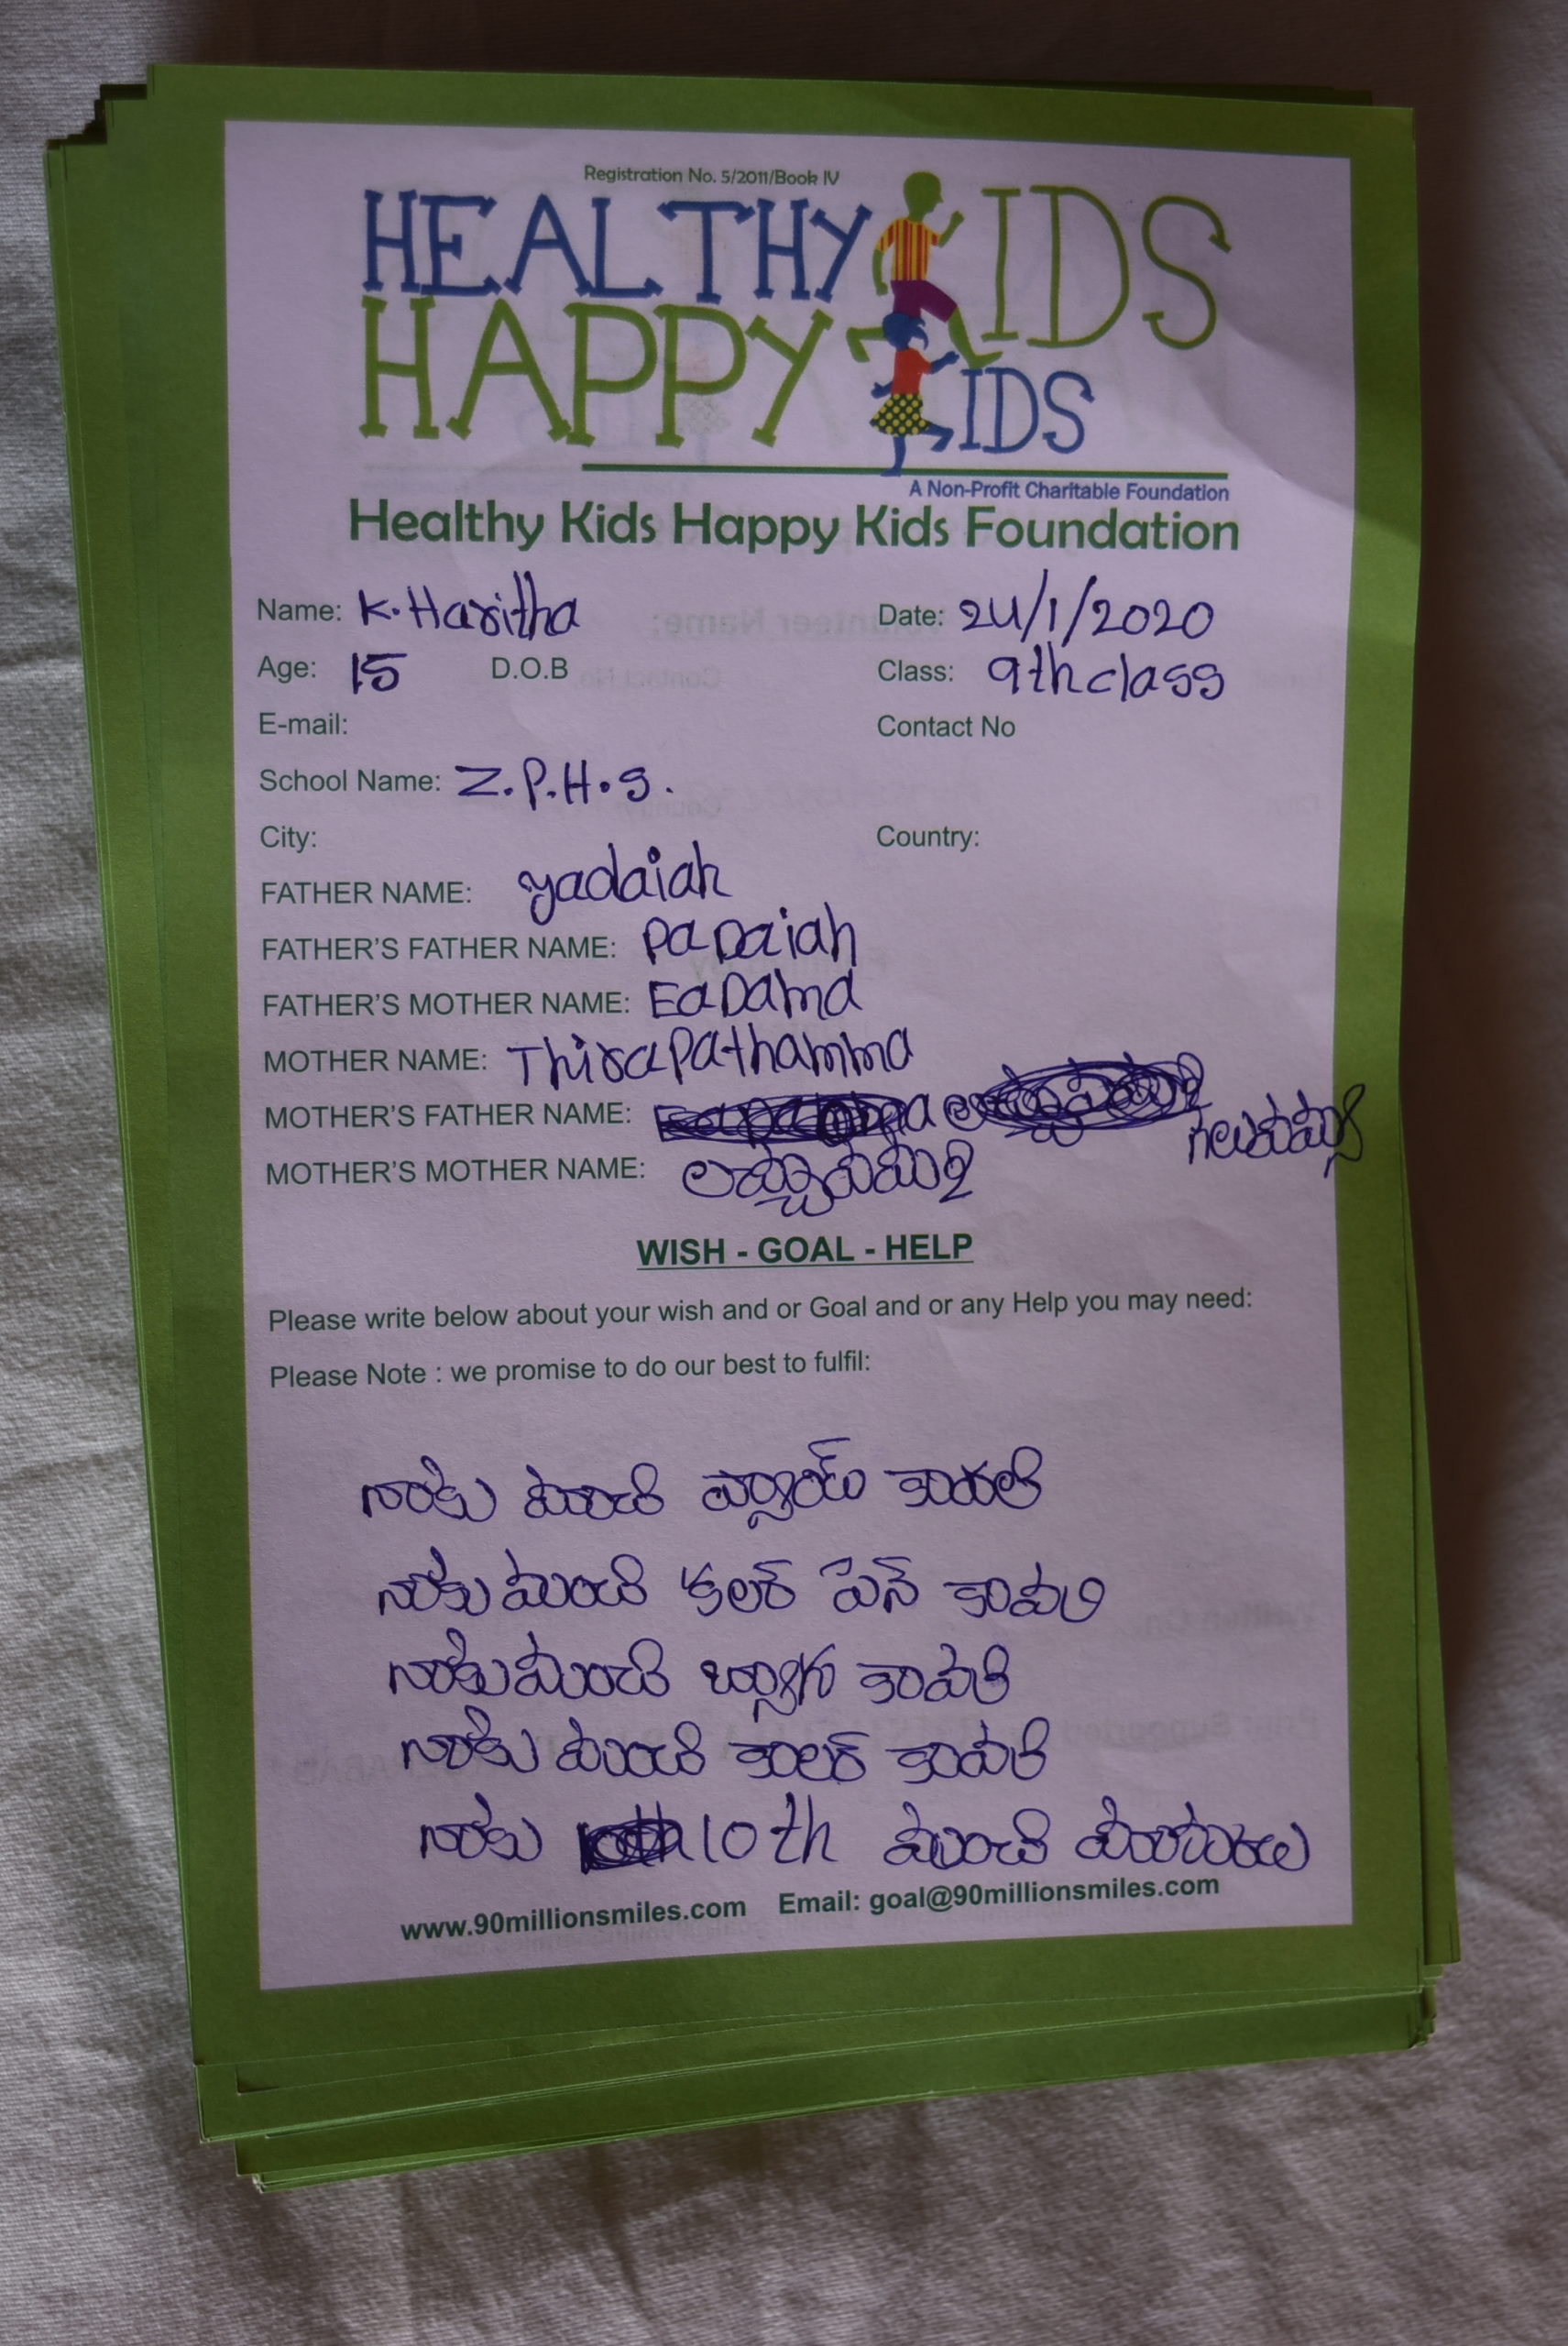 Registration No. 5/2011/Book IV
HEALTHY KIDS
HAPPY KIDS
A Non-Profit Charitable Foundation
Healthy Kids Happy Kids Foundation
Name: K. Haritha Date: 24/1/2020
Age: 15 D.O.B Class: 9th class
E-mail: Contact No
School Name: Z.P.H.S.
City: Country:
FATHER NAME: yadaiah
FATHER'S FATHER NAME: papaiah
FATHER'S MOTHER NAME:
MOTHER NAME: Thirapathamma
MOTHER'S FATHER NAME:
MOTHER'S MOTHER NAME:
WISH - GOAL - HELP
Please write below about your wish and or Goal and or any Help you may need:
Please Note : we promise to do our best to fulfil:
నాకు మంచి
నాకు మంచి కలర్ పెన్ కావలి
నాకు మంచి బ్యాగు కావలి
నాకు మంచి కాలర్ కావలి
నాకు 10th మంచి
www.90millionsmiles.com Email: goal@90millionsmiles.com